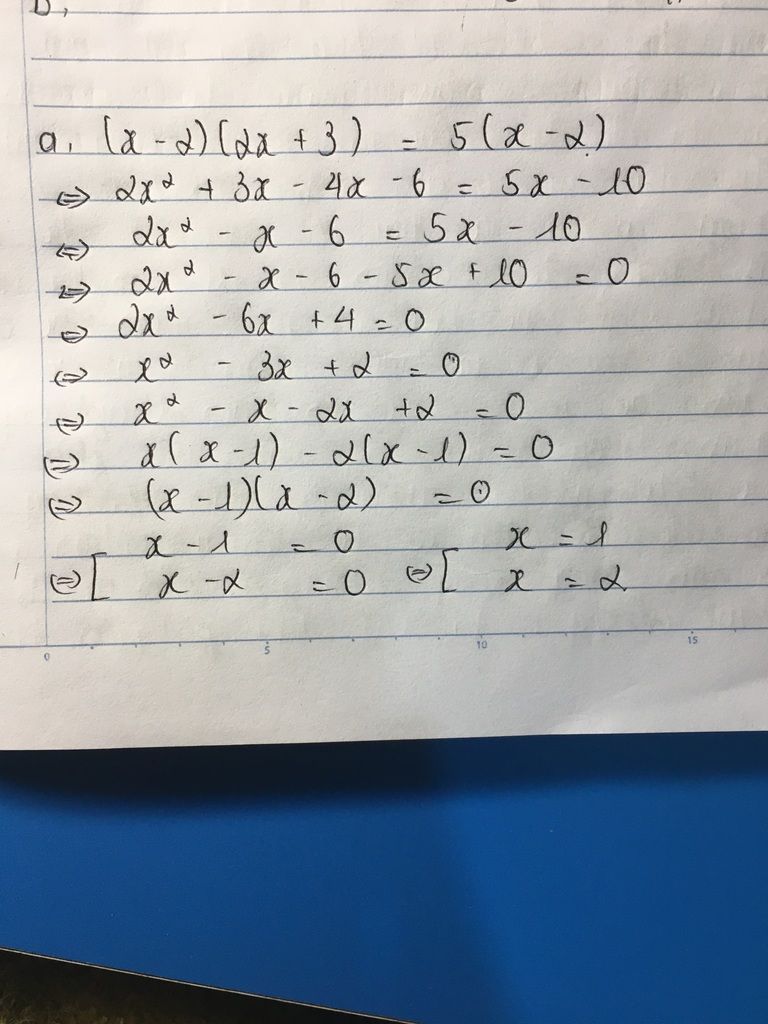 a, (x - 2)(2x + 3) = 5(x - 2)
⇔ 2x² + 3x - 4x - 6 = 5x - 10
⇔ 2x² - x - 6 = 5x - 10
⇔ 2x² - x - 6 - 5x + 10 = 0
⇔ 2x² - 6x + 4 = 0
⇔ x² - 3x + 2 = 0
⇔ x² - x - 2x + 2 = 0
⇔ x(x - 1) - 2(x - 1) = 0
⇔ (x - 1)(x - 2) = 0
x - 1 = 0 x = 1
⇔ [ x - 2 = 0 ⇔ [ x = 2
0 5 10 15